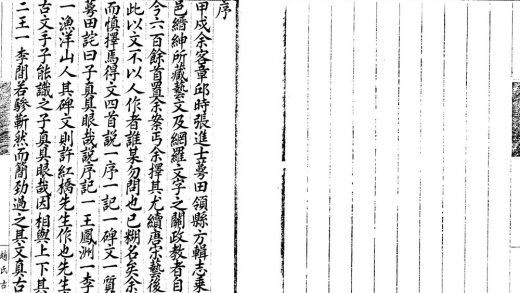 序
甲戌余客章邱時張進士蓼田領縣方輯志乘
邑縉紳所藏藝文及網羅文字之關政教者自
今六百餘首置余案丐余擇其尤續唐宗藝後
此以文不以人作者誰某勿問也已糊名矣余
而慎擇焉得文四首説一序一記一碑文一質
蓼田詫曰子真具眼哉説序記一王鳳洲一李
一漁洋山人其碑文則許紅橋先生作也先生
古文手子能識之子真具眼哉因相與上下其
二王一李間若驂靳然而簡勁過之其文真古
趙氏古